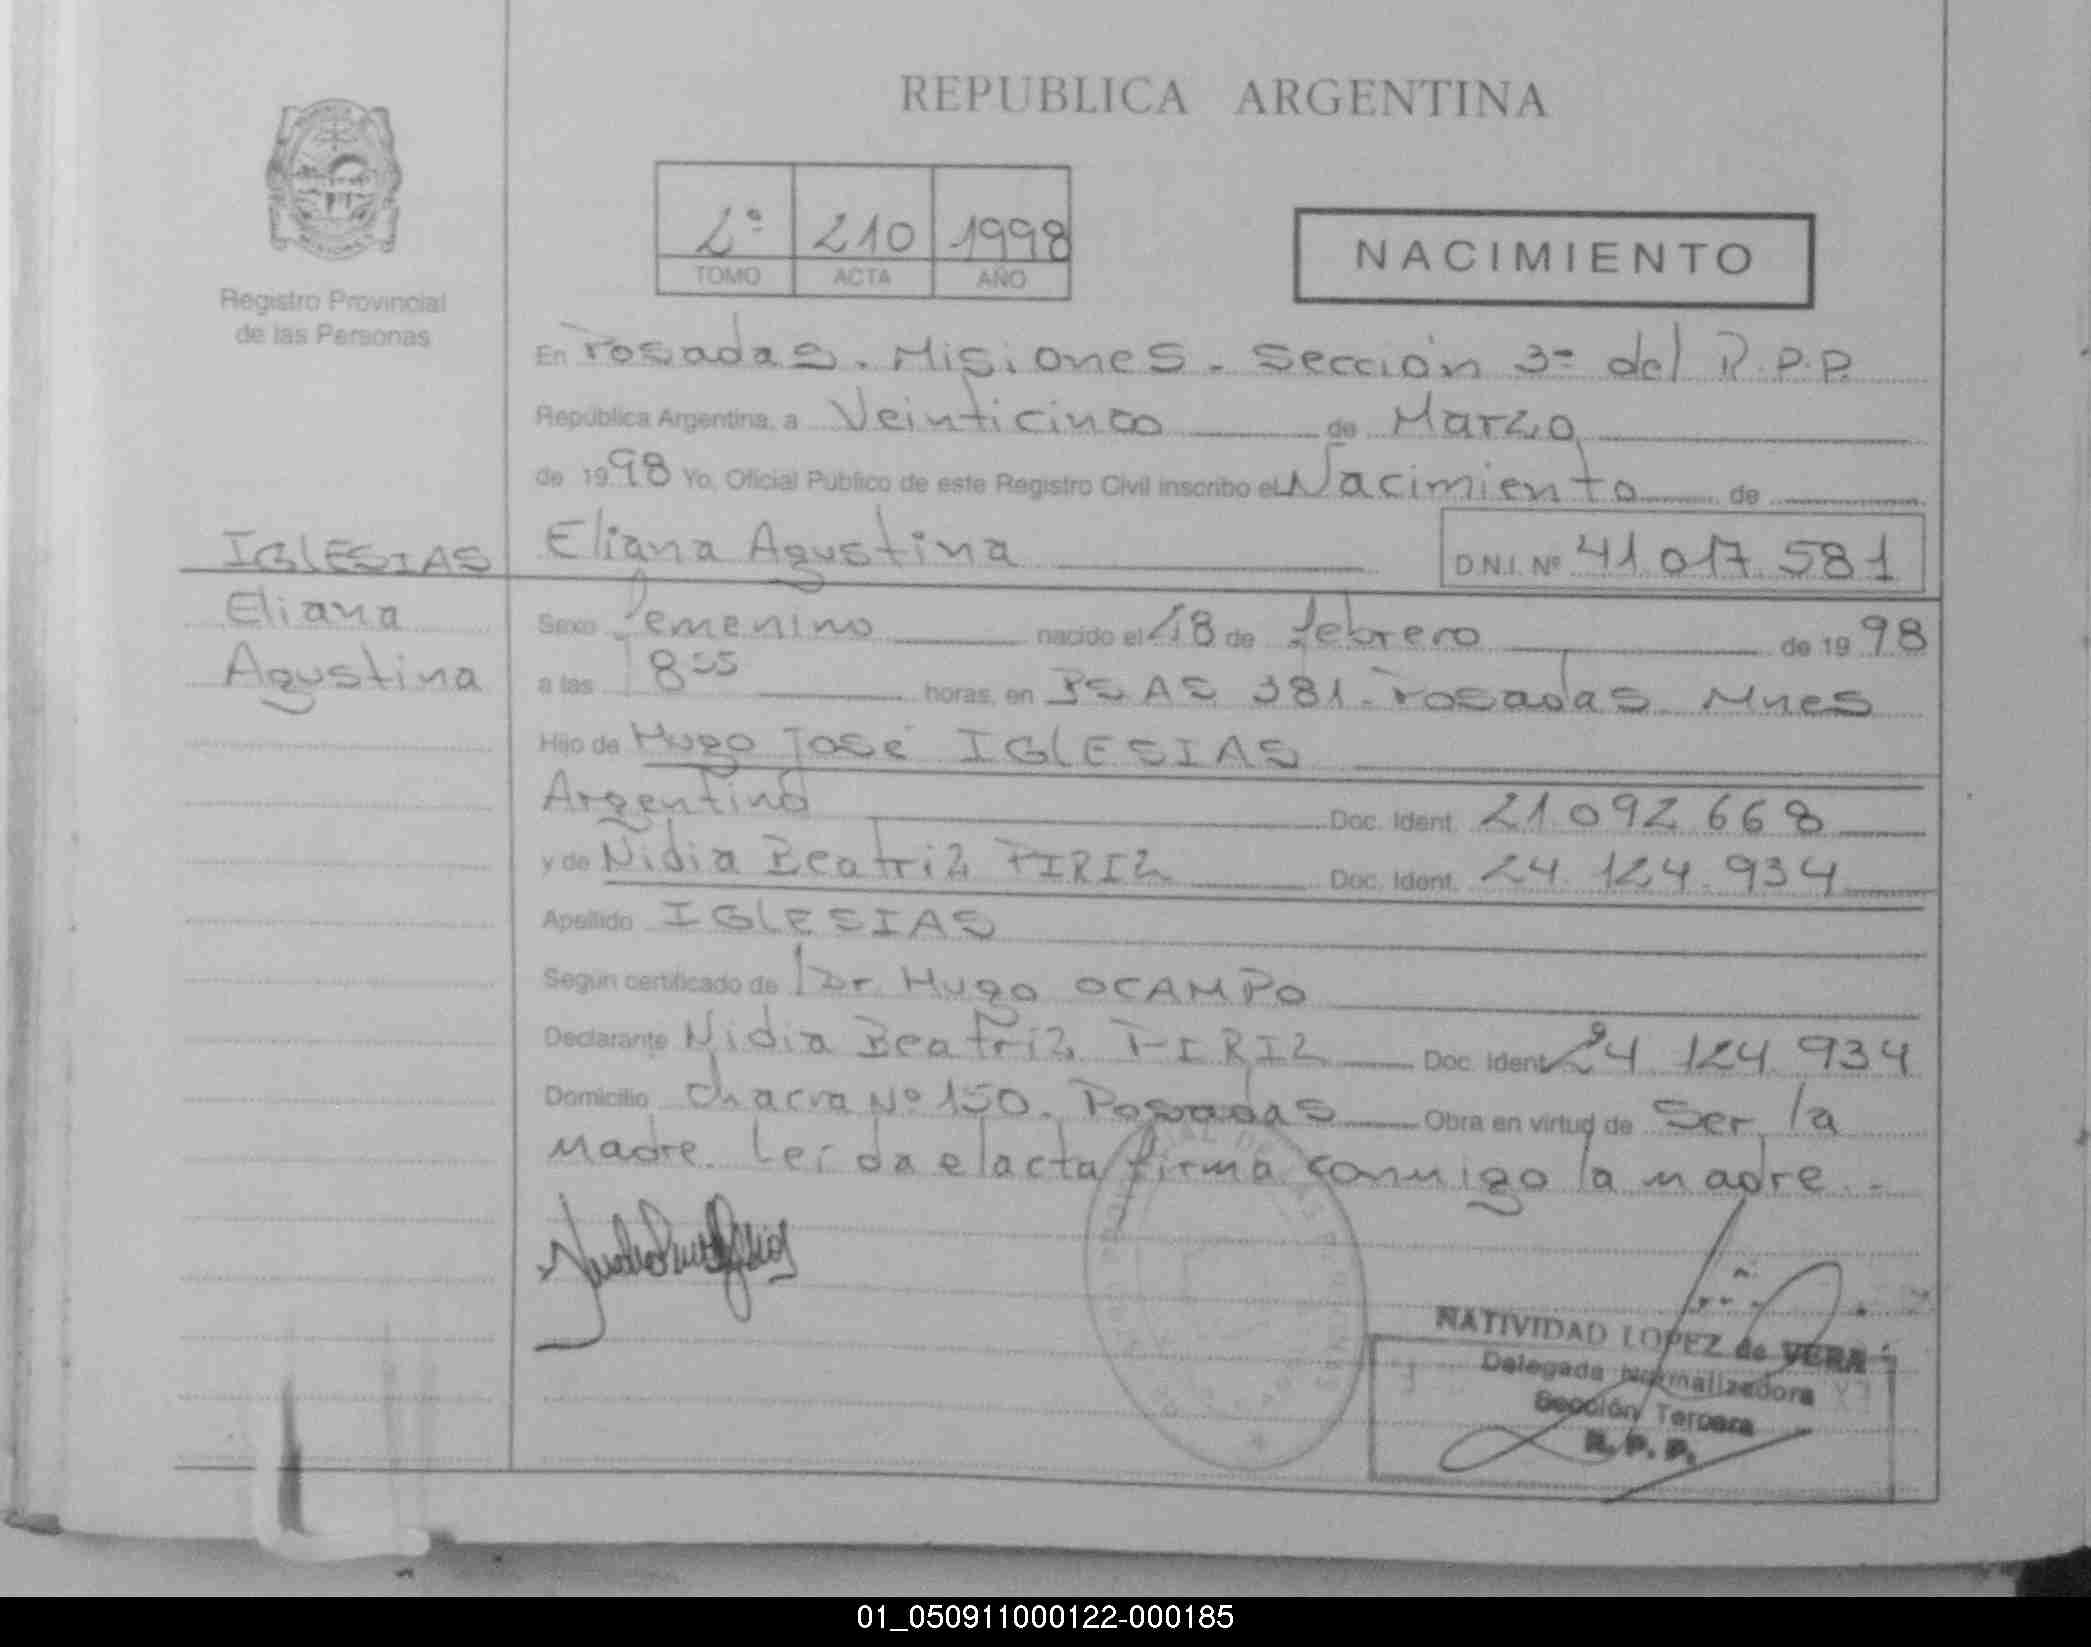 REPUBLICA ARGENTINA
Registro Provincial
de las Personas
2º 210 1998
TOMO ACTA AÑO
NACIMIENTO
En Posadas. Misiones. Sección 3ª del R.P.P.
República Argentina, a Veinticinco de Marzo
de 1998 Yo, Oficial Público de este Registro Civil inscribo el Nacimiento de
IGLESIAS
Eliana
Agustina
Eliana Agustina D.N.I. Nº 41 017 581
Sexo Femenino nacido el 18 de febrero de 1998
a las 8 55 horas, en BSAS 381. Posadas. Mnes
Hijo de Hugo José IGLESIAS
Argentino Doc. Ident. 21 092 668
y de Nidia Beatriz PIRIZ Doc. Ident. 24. 124. 934
Apellido IGLESIAS
Según certificado de Dr. Hugo OCAMPO
Declarante Nidia Beatriz PIRIZ Doc. Ident 24 124 934
Domicilio Chacra Nº 150. Posadas Obra en virtud de Ser la
madre. Leída el acta firma conmigo la madre. -
NATIVIDAD LOPEZ de VERA
Delegada Normalizadora
Sección Tercera
R. P. P.
01_050911000122-000185